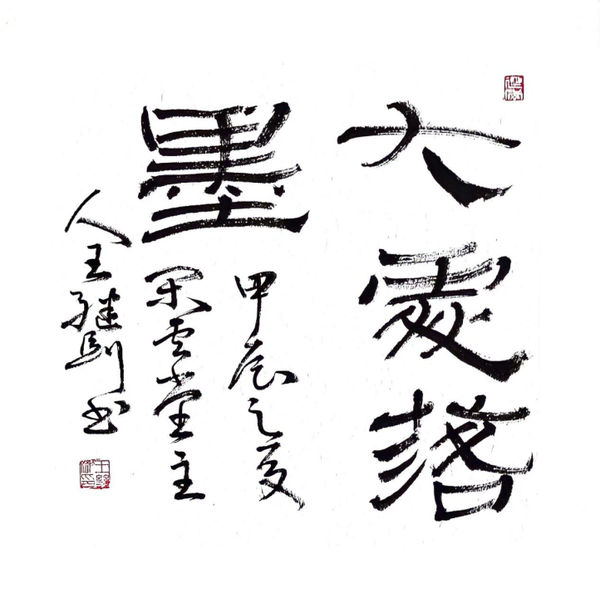 大處落
墨
甲辰之夏
閑云堂主
人王继刚书